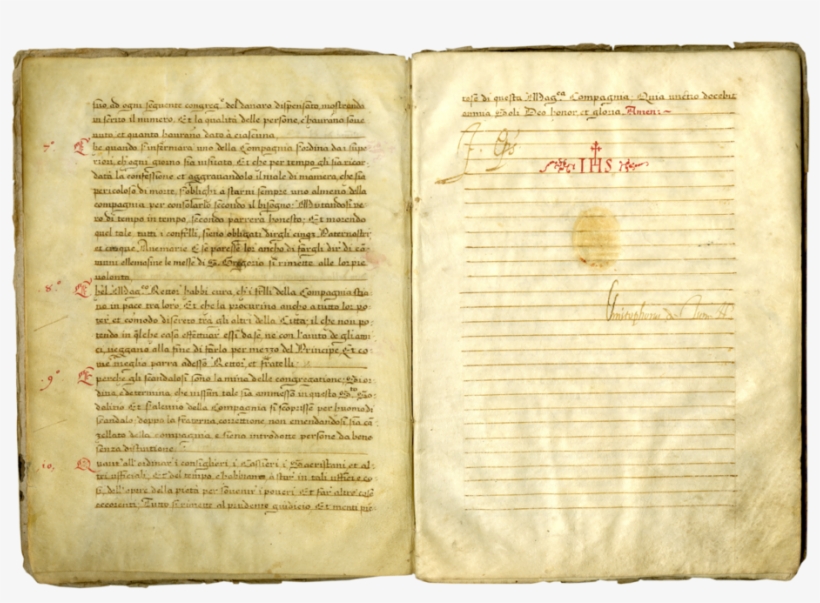 suo, ad ogni seguente congreg.ⁿᵉ del danaro dispensato, mostrando
in scritto il numero, Et la qualità delle persone, c'havranno soue
nuto, et quanto hauranno dato à ciascuna.
7º Che quando s'infermarà uno della Compagnia s'ordina dai supe
riori, ch'ogni giorno sia visitato. Et che per tempo gli sia ricor
data la confessione, et aggravandolo il male di maniera, che sia
pericoloso di morte, s'oblighi a starvi sempre uno almeno della
compagnia per consolarlo secondo il bisogno: Mutandosi
di tempo in tempo, secondo parrerà honesto; Et morendo
quel tale, tutti i confratelli, sieno obligati dirgli cinque Paternostri
et cinque Avemarie. E se paresse lor anche di fargli dir di co
muni elemosine le messe di S. Gregorio si rimette alle lor pie
volontà.
8º Ch'el Mag.ᶜᵒ Rettor habbi cura, ch'i fratelli della Compagnia stia
no in pace tra loro, Et che la procurino anche a tutto lor po
ter, et comodo discreto trà gli altri della Città; il che non po
tendo in qualche caso effettuar essi da sè, ne con l'aiuto de gli ami
ci, veggano alla fine di farlo per mezzo del Principe, Et co
me meglio parrà adesso Rettor, et fratelli.
9º E perche gli scandalosi sono la ruina delle congregationi;
determina, che nissun tale sia ammesso in questo
Et s'alcuno della Compagnia si scoprisse per huomo di
scandalo doppo la fraterna corretione, non emendandosi sia can
cellato dalla compagnia, e sieno introdotte persone da bene
senza distintione.
10. Quant'all'ordinar i consiglieri, i Cassieri i Sacrestani et al
tri ufficiali; Et del tempo, c'habbiano à star in tali uffici e co
sì, dell'opere della pietà per sovenir i poveri. Et far altre cose
occorenti. Tutto si rimette al prudente giudicio, Et
di questa Mag.ᶜᵃ Compagnia; Quia unctio docebit
omnia Soli Deo honor, et gloria. Amen:~
IHS